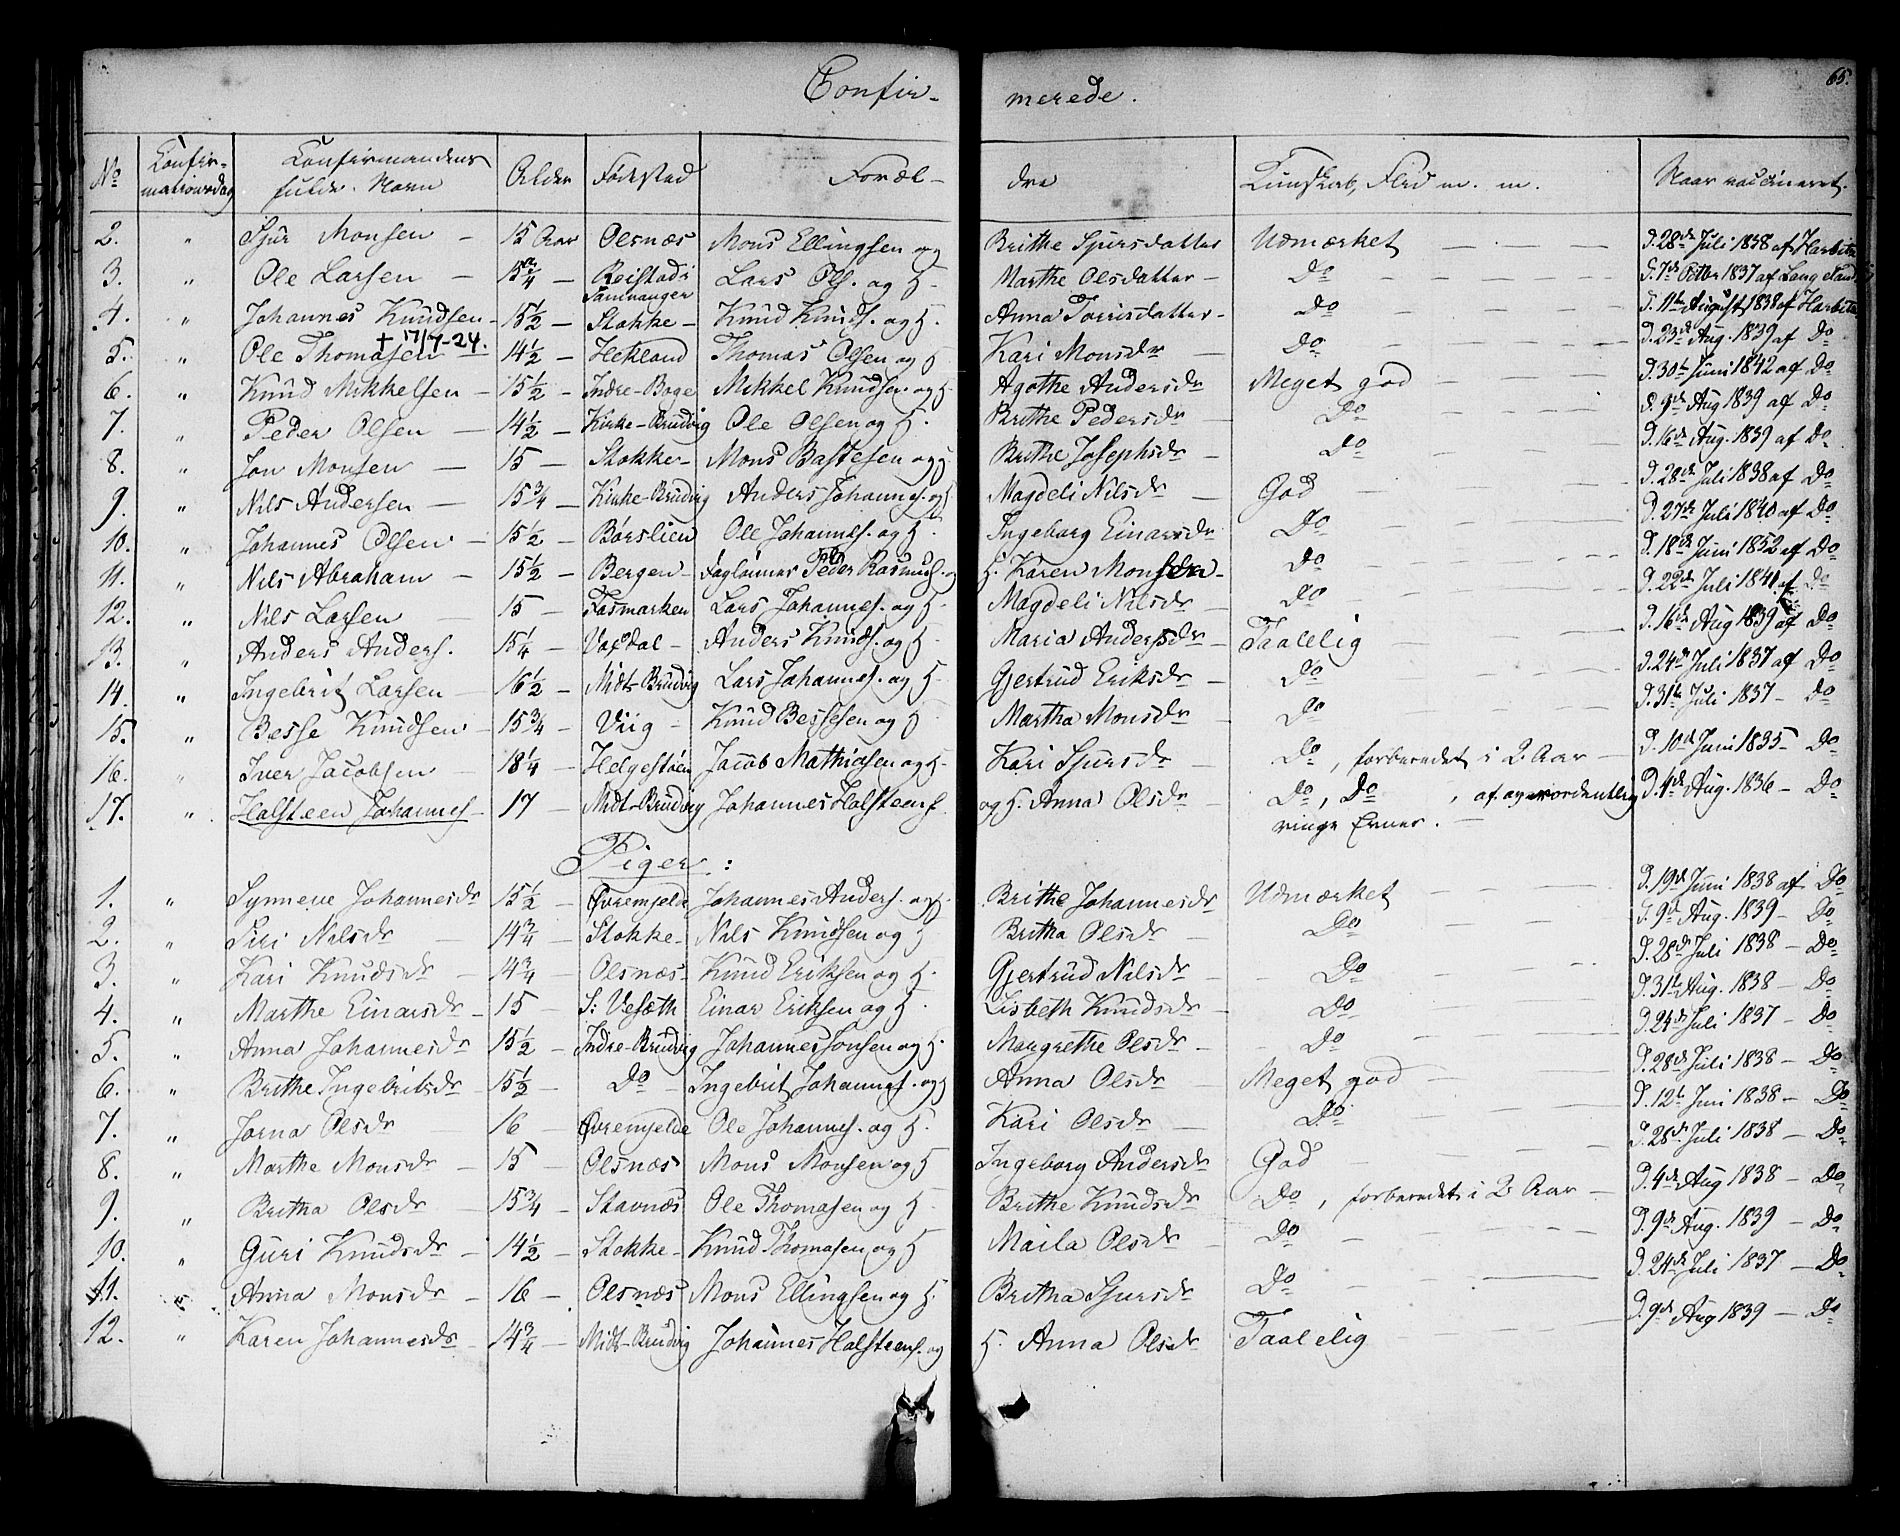 Confir- merede. 65.
No Konfir- mationsdag Konfirmandens fulde Navn Alder Fødestad Foræl- dre Kundskab, Flid m. m. Naar vaccineret.
2. " Sjur Monsen - 15 Aar Olsnæs Mons Ellingsen og Brithe Sjursdatter Udmærket - - - D. 28de Juli 1838 af Harbitz
3. " Ole Larsen - 15 3/4 - Reistad i Samnanger Lars Ols. og H. Marthe Olsdatter - Do - - - D. 7de Octbr 1837 af Langeland
4. " Johannes Knudsen - 15 1/2 - Stokke - Knud Knuds. og H. Anna Torrisdatter - Do - - - D. 11te August 1838 af Harbitz
5. " Ole Thomasen † 17/7-24. 14 1/2 - Hekland Thomas Olsen og H. Kari Monsdr - Do - - - D. 23de Aug. 1839 af Do
6. " Knud Mikkelsen - 15 1/2 - Indre-Boge Mikkel Knudsen og H. Agathe Andersdr Meget god - - - D. 30te Juni 1842 af Do
7. " Peder Olsen - 14 1/2 - Kirke-Brudvig Ole Olsen og H. Brithe Pedersdr - Do - - - D. 9de Aug 1839 af Do
8. " Jon Monsen - 15 - Stokke - Mons Bastesen og H Brithe Josephsdr - Do - - - D. 16de Aug. 1839 af Do
9. " Nils Andersen - 15 3/4 - Kirke-Brudvig Anders Johannes. og H. Magdeli Nilsdr - God - - - D. 28de Juli 1838 af Do
10. " Johannes Olsen - 15 1/2 - Børslien Ole Johannes. og H. Ingeborg Einarsdr Do - - - D. 27de Juli 1840 af Do
11. " Nils Abraham - 15 1/2 - Bergen - Daglønner Peder Rasmus. og H. Karen Monsen - Do - - - D. 18de Juni 1852 af Do
12. " Nils Larsen - 15 - Fosmarken Lars Johannes. og H. Magdeli Nilsdr - Do - - - D. 22de Juli 1841 af Do
13. " Anders Anders. 15 1/4 - Vaxdal - Anders Knuds. og H. Maria Andersdr - Taalelig - - - D. 16de Aug 1839 af Do
14. " Ingebrit Larsen - 16 1/2 - Midt-Brudvig Lars Johannes. og H. Gjertrud Eriksdr - Do - - - D. 24de Juli 1837 af Do
15. " Besse Knudsen - 15 3/4 - Viig - Knud Bessesen og H Martha Monsdr - Do - - - D. 31te Juli 1837 - Do
16. " Iver Jacobsen - 18 1/4 - Helgestøen Jacob Mathiasen og H. Kari Sjursdr - Do, forberedet i 2 Aar - D. 10de Juni 1835 - Do
17. " Halsteen Johannes. - 17 - Midt-Brudvig Johannes Halsteens. og H. Anna Olsdr - Do, Do, af overordentlig D. 4de Aug. 1836 - Do
ringe Evner. -
Piger:
1. " Synneve Johannesdr 15 1/2 - Øvremjelde Johannes Anders. og H. Brithe Johannesdr Udmærket - - - D. 19de Juni 1838 af Do
2. " Siri Nilsdr - 14 3/4 - Stokke - Nils Knudsen og H Britha Olsdr - Do - - - D. 9de Aug. 1839 - Do
3. " Kari Knudsdr - 14 3/4 - Olsnæs - Knud Eriksen og H. Gjertrud Nilsdr - Do - - - D. 28de Juli 1838 - Do
4. " Marthe Einarsdr - 15 - S: Vesæth Einar Eriksen og H. Lisbeth Knudsdr - Do - - - D. 31te Aug. 1838 - Do
5. " Anna Johannesdr 15 1/2 - Indre-Brudvig Johannes Jonsen og H. Margrethe Olsdr - Do - - - D. 24de Juli 1837 - Do
6. " Brithe Ingebritsdr 15 1/2 - Do - Ingebrit Johannes. og H Anna Olsdr - Meget god - - - D. 28de Juli 1838 - Do
7. " Jorna Olsdr 16 - Øvremjelde Ole Johannes. og H. Kari Olsdr - Do - - - D. 12te Juni 1838 - Do
8. " Marthe Monsdr - 15 - Olsnæs Mons Monsen og H Ingeborg Andersdr God - - - D. 28de Juli 1838 - Do
9. " Britha Olsdr - 15 3/4 - Stavnæs Ole Thomasen og H. Brithe Knudsdr - Do, forberedet i 2 Aar - D. 4de Aug 1838 - Do
10. " Guri Knudsdr - 14 1/2 - Stokke - Knud Thomasen og H Maila Olsdr - Do - - - D. 9de Aug. 1839 - Do
11. " Anna Monsdr - 16 - Olsnæs Mons Ellingsen og H. Britha Sjursdr Do - - - D. 24de Juli 1837 - Do
12. " Karen Johannesdr - 14 3/4 - Midt-Brudvig Johannes Halsteens. og H. Anna Olsdr Taalelig - - - D. 9de Aug 1839 - Do